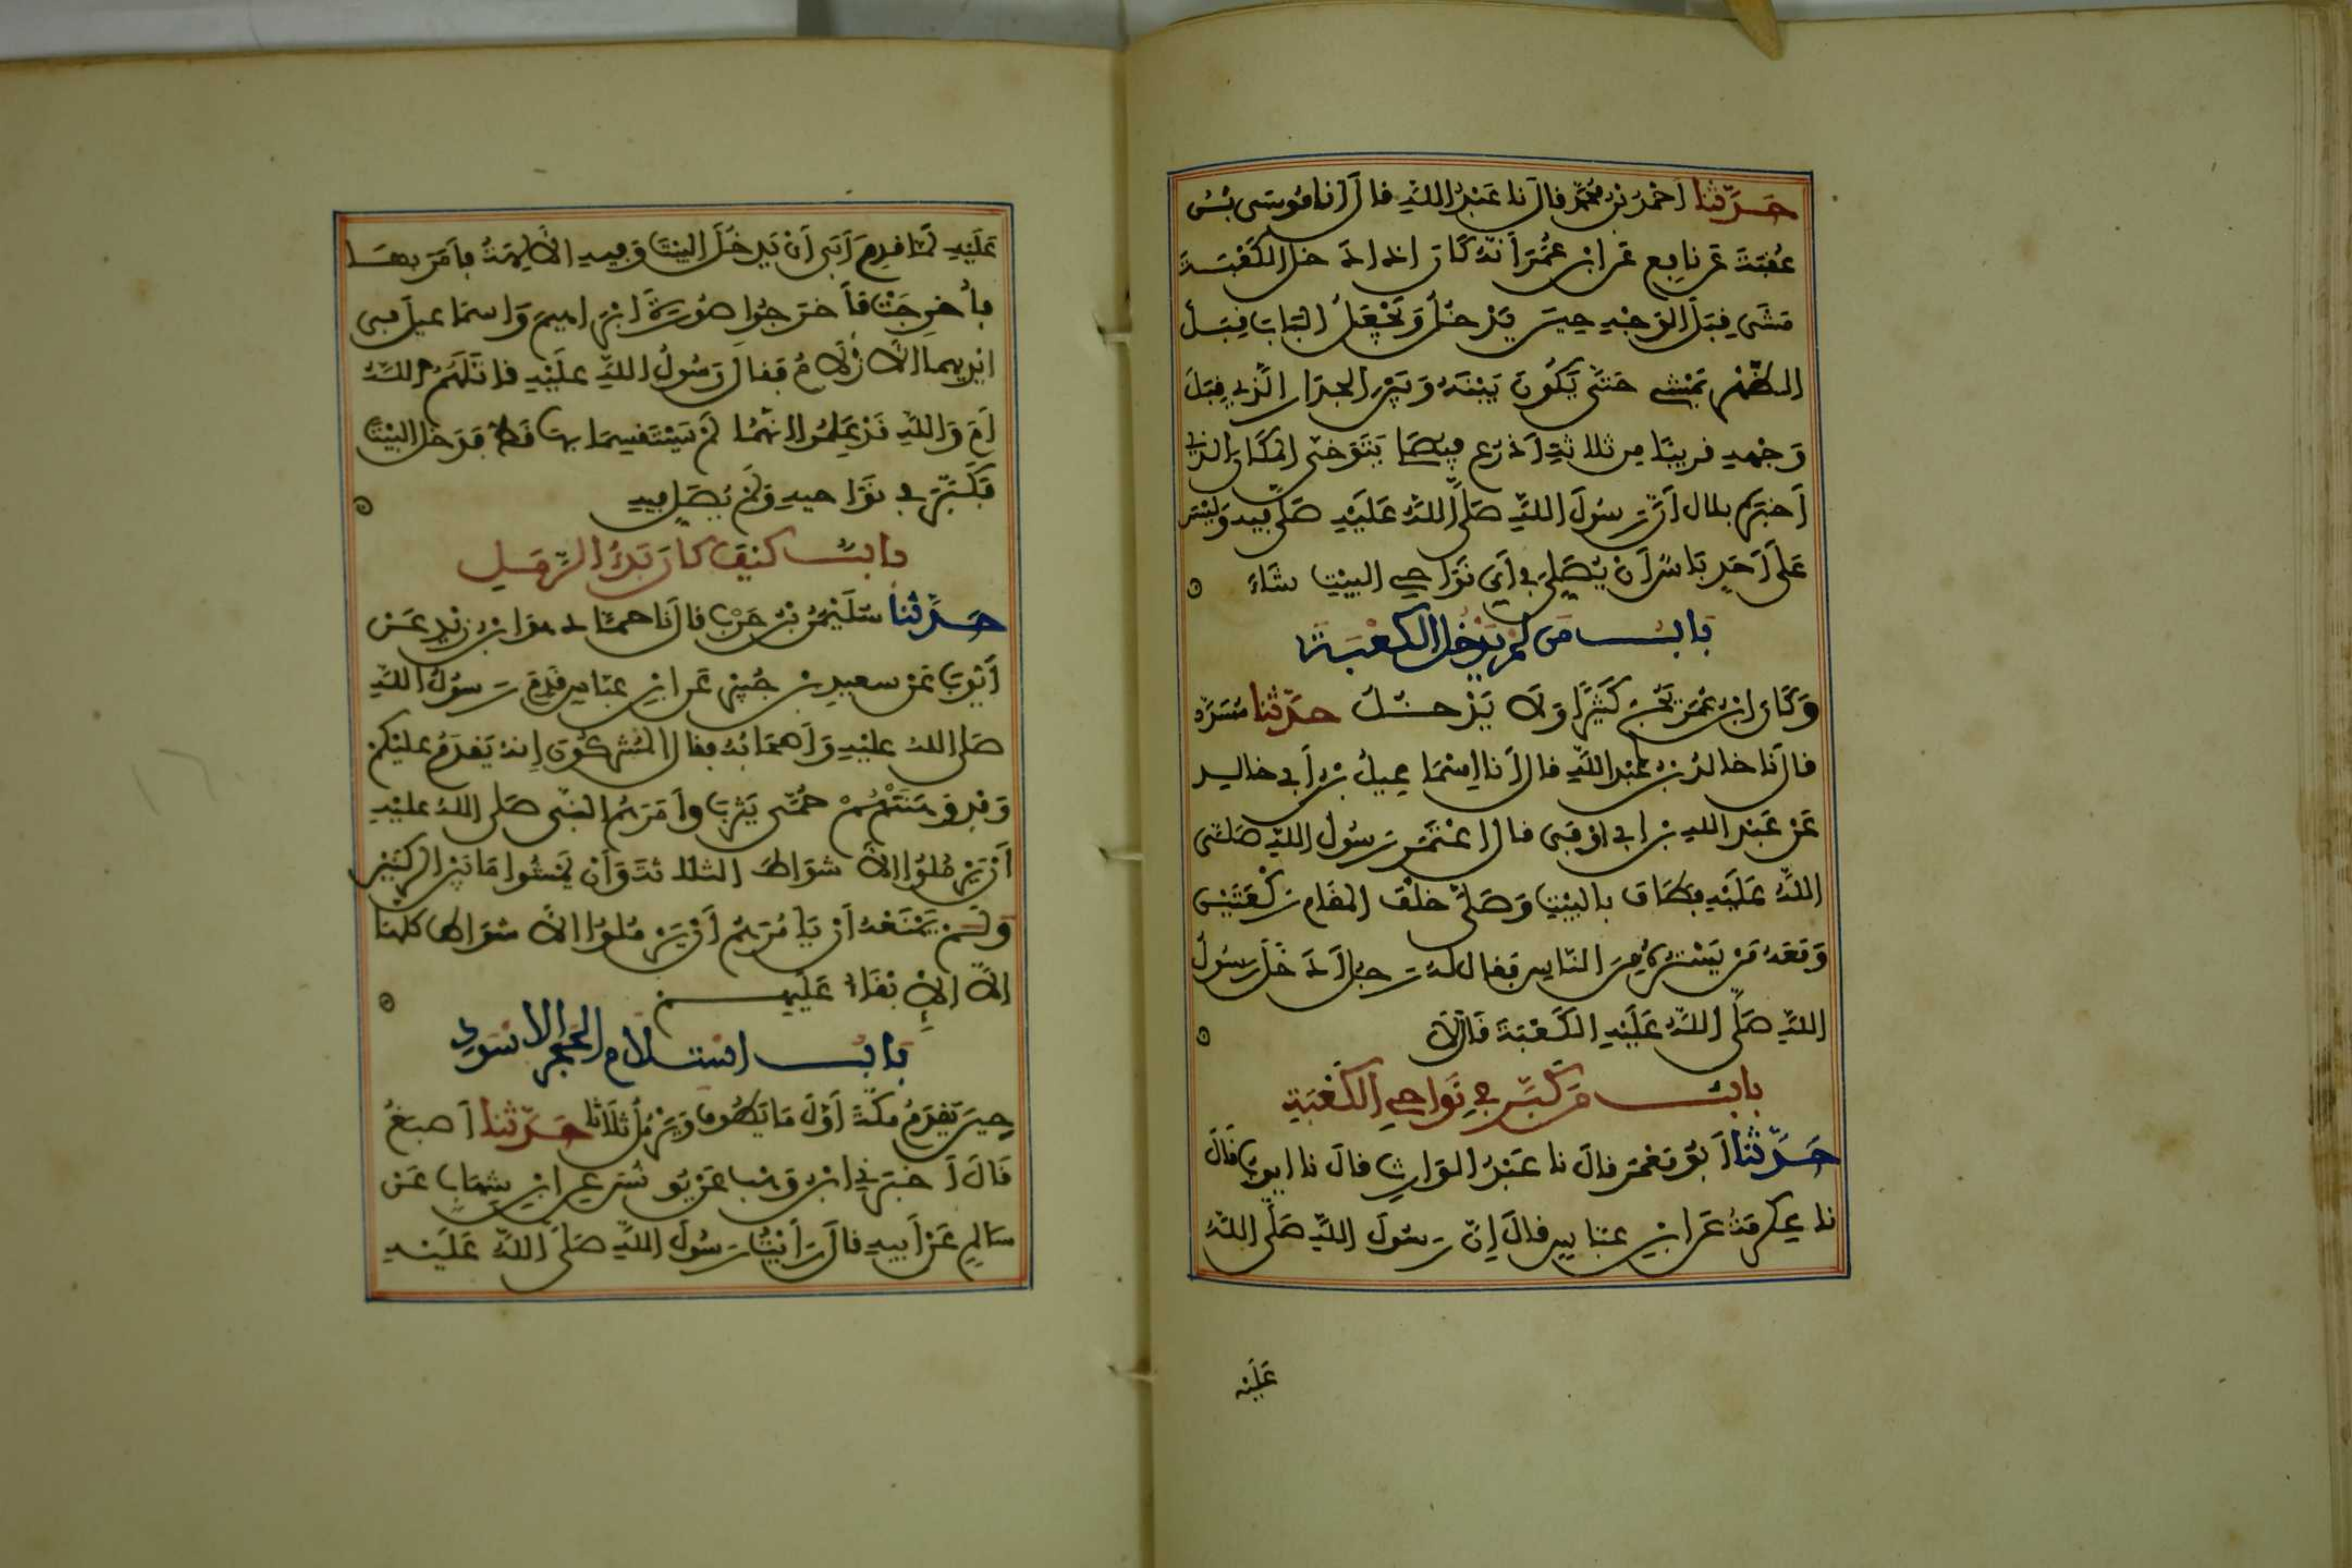 حَدَّثنا أَحْمَدُ بْنُ مُحَمَّدٍ قال نا عَبْدُ اللَّهِ قال أنا مُوسَى بْنُ
عُقْبَةَ عَن نافِعٍ عَن ابْنِ عُمَرَ أَنَّهُ كَانَ إذا دَخَلَ الكَعْبَةَ
مَشَى قِبَلَ الوَجْهِ حِينَ يَدْخُلُ وَيَجْعَلُ البَابَ قِبَلَ
الظَّهْرِ يَمْشِي حَتَّى يَكُونَ بَيْنَهُ وَبَيْنَ الجِدَارِ الَّذِي قِبَلَ
وَجْهِهِ قريبًا مِن ثلاثةِ أَذْرُعٍ فيصَلِّي يَتَوَخَّى المكَانَ الذي
أَخبَرَهُ بلال أَنَّ رَسُولَ اللَّهِ صَلَّى اللَّهُ عَلَيْهِ صَلَّى فِيهِ وَلَيْسَ
عَلَى أَحَدٍ بَاسٌ أَنْ يُصَلِّيَ فِي أَيِّ نَوَاحِي البيْتِ شَاءَ
بَابُ مَن لَمْ يَدْخُلِ الكَعْبَةَ
وَكَانَ ابْنُ عُمَرَ يَحُجُّ كَثِيرًا وَلَا يَدْخُلُ حدَّثنا مُسَدَّد
قال نا خالدُ بْنُ عَبْدِ اللَّهِ قال أنا إِسْمَاعِيلُ بْنُ أَبِي خَالِدٍ
عَنْ عَبْدِ اللهِ بْنِ أبي أَوْفَى قال اعْتَمَرَ رَسُولُ اللهِ صَلَّى
اللَّهُ عَلَيْهِ فَطَافَ بالبَيْتِ وَصَلَّى خَلْفَ المقَامِ رَكْعَتَيْنِ
وَمَعَهُ مَنْ يَسْتُرُهُ مِنَ النَّاسِ فَقال لَهُ رَجُلٌ أَدَخَلَ رَسُولُ
اللَّهِ صَلَّى اللَّهُ عَلَيْهِ الكَعْبَةَ قَالَ لَا
بابُ مَن كَبَّرَ فِي نَوَاحِي الكَعْبَةِ
حَدَّثنا أَبُو مَعْمَرٍ قال نا عَبْدُ الوَارِثِ قال نا أيوبُ قَالَ
نا عِكْرِمَةُ عَن ابْنِ عبَّاسٍ قالَ إِنَّ رَسُولَ اللَّهِ صَلَّى اللَّهُ
عَلَيْهِ
عَلَيْهِ لَمَّا قدِمَ أَبَى أَنْ يَدْخُلَ البيتَ وَفِيهِ الآلِهَةُ فأَمَرَ بِهَا
فأُخْرِجَتْ فأَخرَجُوا صُورَةَ ابْرَاهِيمَ وَاسمَاعيلَ فِي
ايْدِيهِمَا الأَزْلَامُ فَقال رَسُولُ اللَّهِ عَلَيْهِ قاتَلَهُمُ اللَّهُ
أَمَ وَاللَّهِ قَدْ عَلِمُوا انَّهُمَا لَمْ يَسْتَقْسِمَا بها قَطُّ فَدَخَلَ البَيْتَ
فَكَبَّرَ فِي نَوَاحِيهِ وَلَمْ يُصَلِّ فِيهِ
بابُ كيْفَ كان بَدْءُ الرَّمَلِ
حَدَّثنا سُلَيْمَنُ بْنُ حَرْبٍ قال نا حمَّاد هو ابنُ زيْدٍ عَنْ
أَيُّوبَ عَنْ سعيدِ بْنِ جُبَيْرٍ عَن ابْنِ عبَّاسٍ قَدِمَ رَسُولُ اللَّهِ
صَلى اللهُ عَلَيْهِ وَأَصْحَابُهُ فقال المُشْرِكُونَ إِنَّهُ يَقدَمُ عليْكُمْ
وَفْدٌ وَهَنَتْهُمْ حُمَّى يَثْرِبَ وأَمَرَهُمُ النبِّي صَلى اللهُ عليْهِ
أَنْ يَرْمُلُوا الأَشوَاطَ الثلاثَةَ وَأَنْ يَمْشُوا مَا بَيْنَ الرُّكْنَيْنِ
وَلَمْ يَمْنَعْهُ أَنْ يَامُرَهُمْ أَنْ يَرْمُلُوا الأَشوَاطَ كلهَا
إلاَّ الإِبْقَاءُ عَلَيْهِمْ
بَابُ اسْتِلَامِ الحَجَرِ الاسْوَدِ
حِينَ يَقْدَمُ مَكَّةَ أَوَّلَ مَا يَطُوفُ وَيَرْمُلُ ثَلَاثًا حَدَّثنا أَصبَغُ
قَالَ أَخبَرَنِي ابْنُ وَهْبٍ عَن يُونُسَ عَنِ ابْنِ شِهَابٍ عَنْ
سَالِمٍ عَنْ أَبِيهِ قال رَأَيْتُ رَسُولَ اللَّهِ صَلَّى اللَّهُ عَلَيْهِ